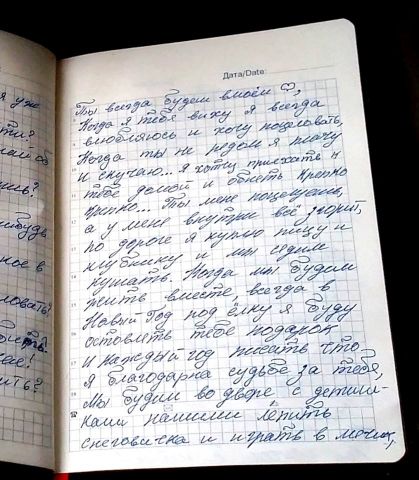 я уже
ти?
Дата/Date:
Ты всегда будеш в моём ♡,
Когда я тебя вижу я всегда
влюбляюсь и хочу поцеловать,
Когда ты не рядом я плачу
и скучаю... я хочу приехать к
тебе домой и обнять крепко
крепко... Ты меня поцелуешь,
а у меня внутри всё горит,
по дороге я куплю пиццу и
клубнику и мы сядим
кушать. Когда мы будим
жить вместе, всегда в
Новый Год под ёлку я буду
оставлять тебе подарок
и каждый год писать что
я благодарна судьбе за тебя,
Мы будим во дворе с детишками
нашими лепить
снеговичка и играть в мячик,